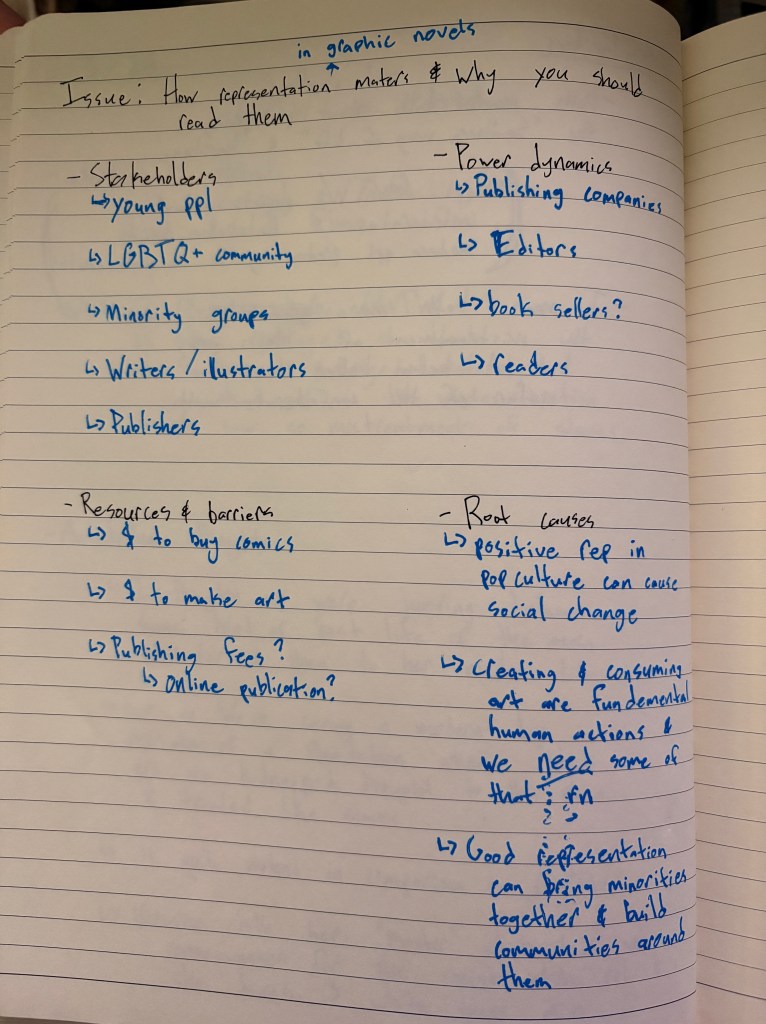 in graphic novels
Issue: How representation maters & Why you should
read them
- Stakeholders
↳ young ppl
↳ LGBTQ+ community
↳ Minority groups
↳ Writers / illustrators
↳ Publishers
- Power dynamics
↳ Publishing companies
↳ Editors
↳ book sellers?
↳ readers
- Resources & barriers
↳ $ to buy comics
↳ $ to make art
↳ Publishing fees?
↳ Online publication?
- Root causes
↳ positive rep in
pop culture can cause
social change
↳ Creating & consuming
art are fundemental
human actions &
we need some of
that rn
↳ Good representation
can bring minorities
together & build
communities around
them